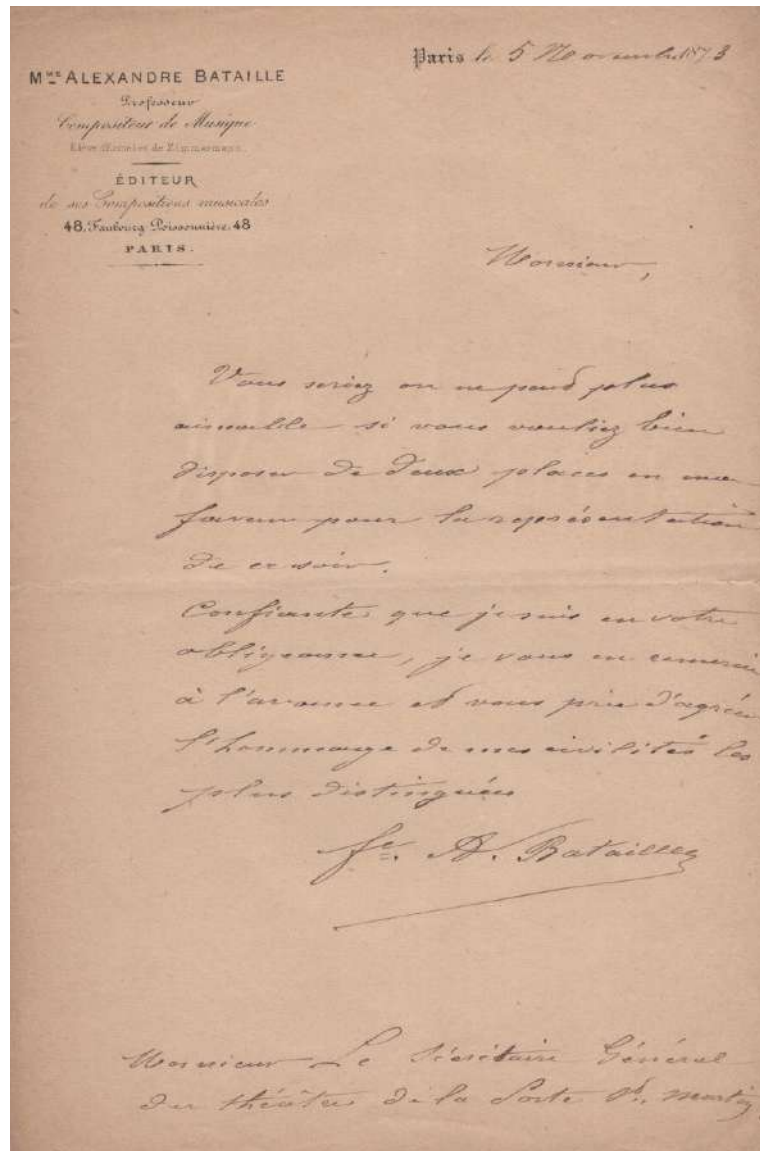 Paris le 5 Novembre 1873
Mme ALEXANDRE BATAILLE
Professeur
Compositeur de Musique
Elève d'Emile et de Zimmermann.
ÉDITEUR
de ses Compositions musicales
48, Faubourg Poissonnière, 48
PARIS.
Monsieur,
Vous seriez on ne peut plus
aimable si vous vouliez bien
disposer de deux places en ma
faveur pour la représentation
de ce soir.
Confiante que je suis en votre
obligeance, je vous en remercie
à l'avance et vous prie d'agréer
l'hommage de mes civilités les
plus distinguées
fe. A. Bataille
Monsieur Le Secrétaire Général
du théâtre de la Porte St. Martin